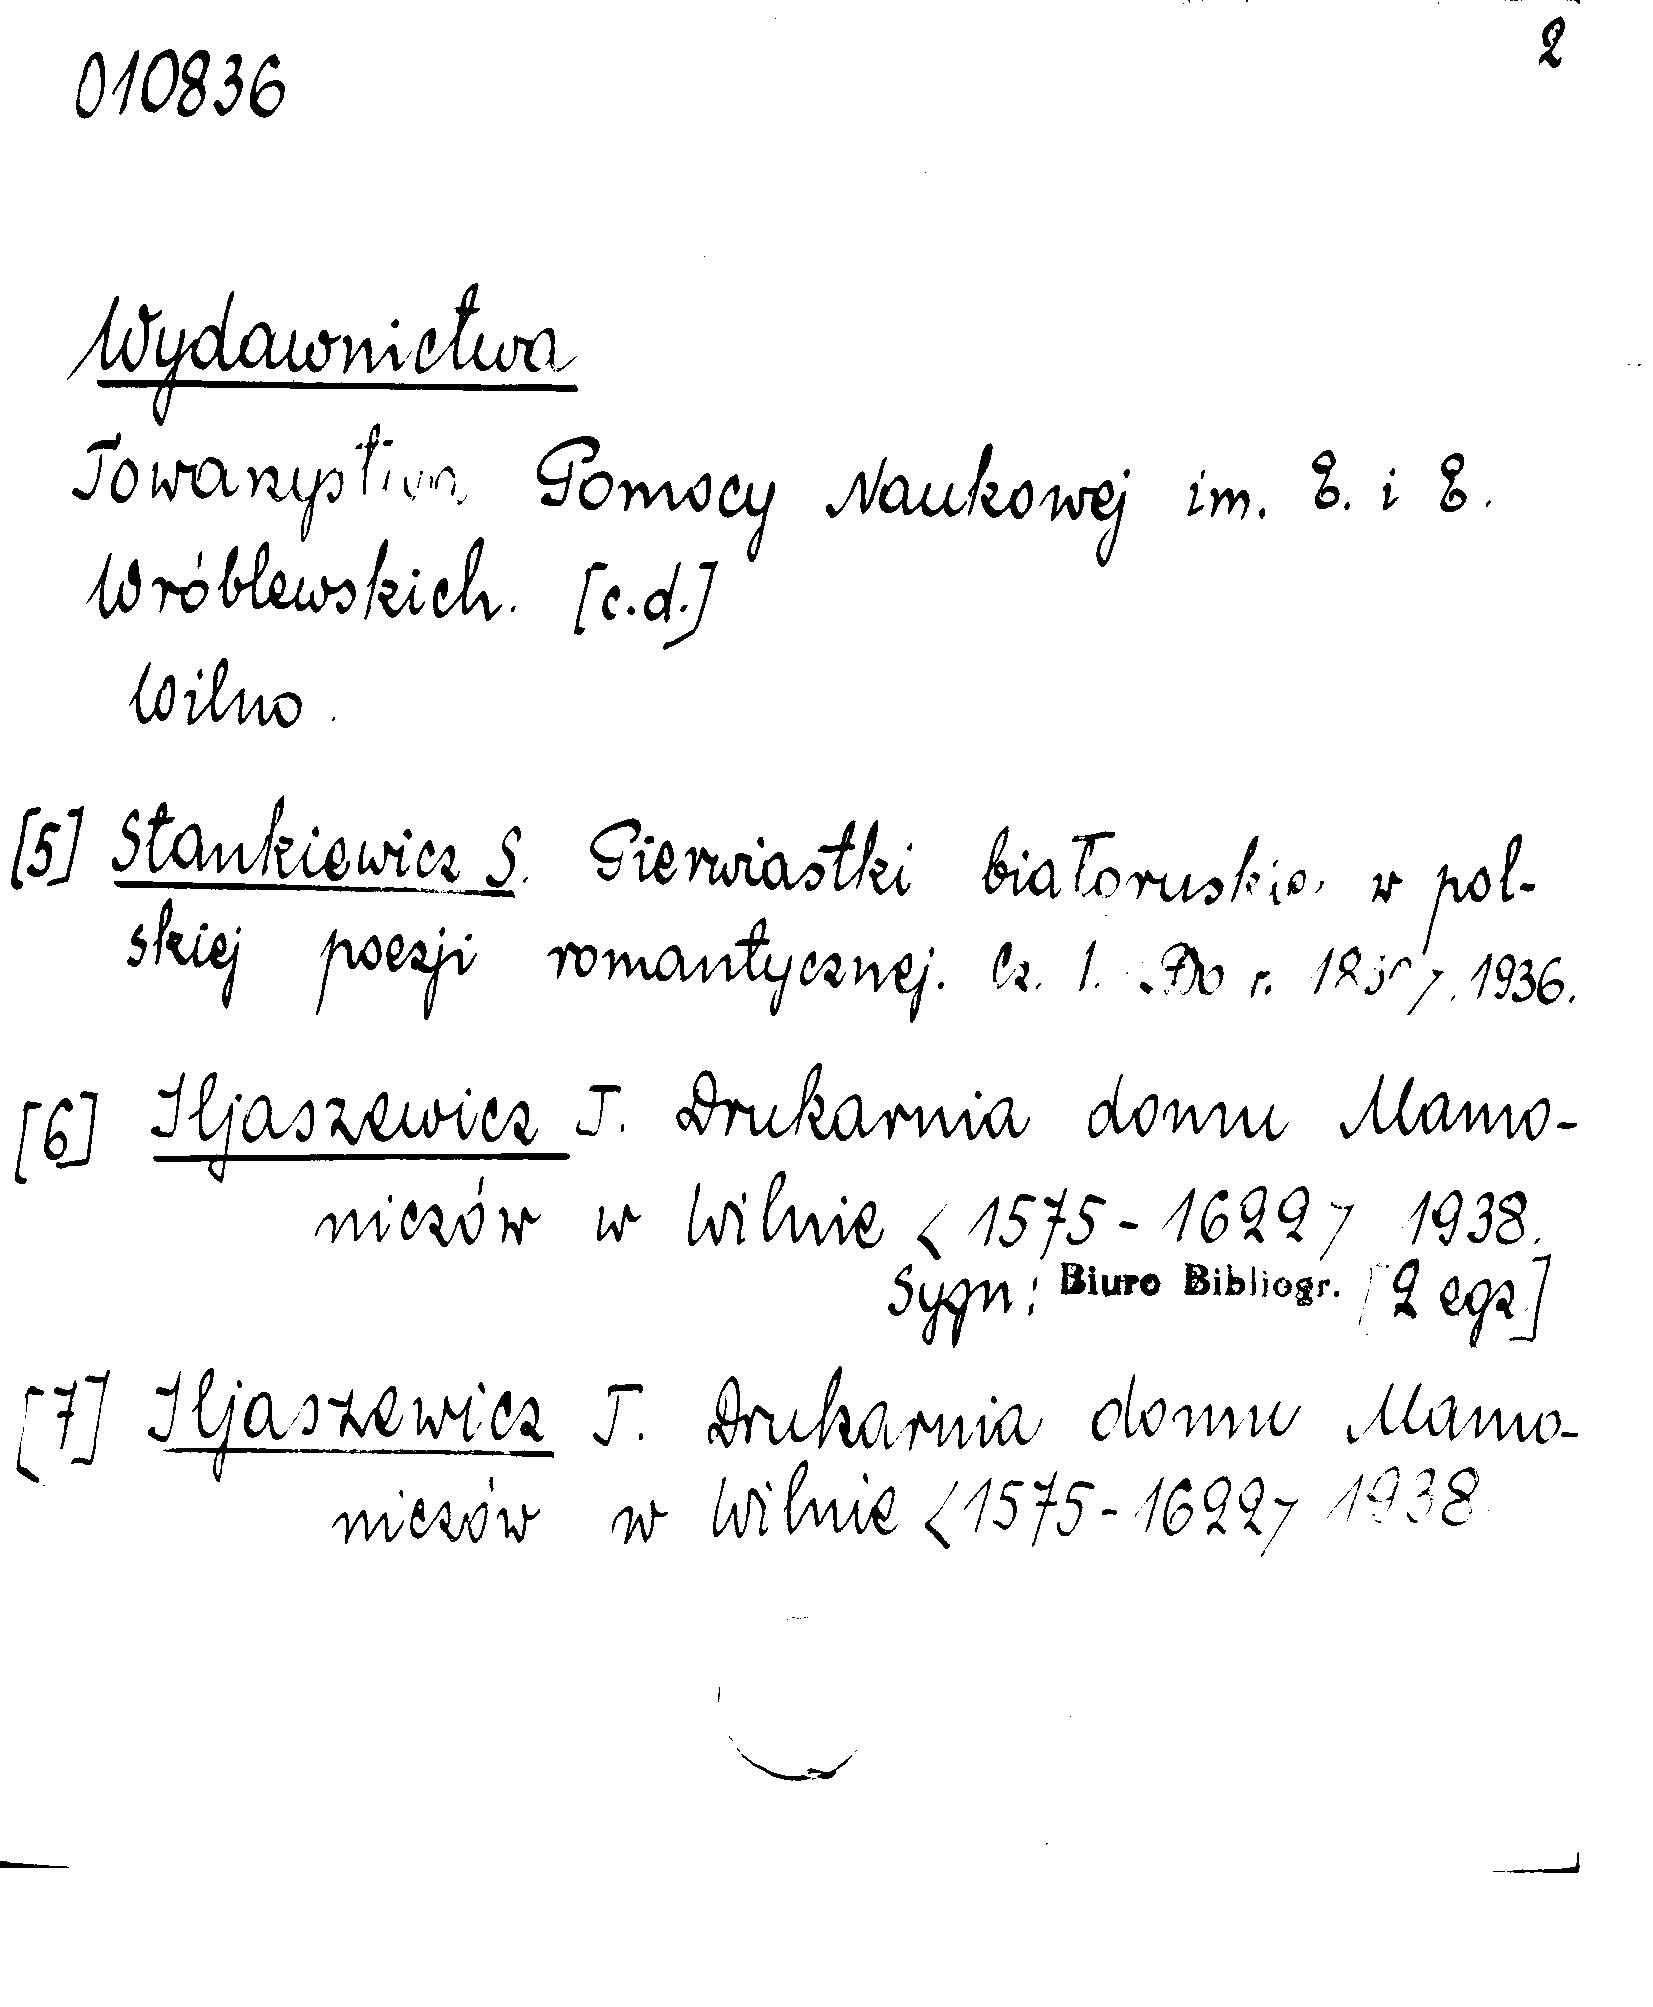 010836
2
Wydawnictwa
Towarzystwa Pomocy Naukowej im. E. i E.
Wróblewskich. [c.d.]
Wilno.
[5] Stankiewicz S. Pierwiastki białoruskie w pol-
skiej poezji romantycznej. Cz. 1. <Do r. 1830>. 1936.
[6] Iljaszewicz T. Drukarnia domu Mamo-
niczów w Wilnie <1575-1622> 1938.
Sygn: Biuro Bibliogr. [2 egz]
[7] Iljaszewicz T. Drukarnia domu Mamo-
niczów w Wilnie <1575-1622> 1938